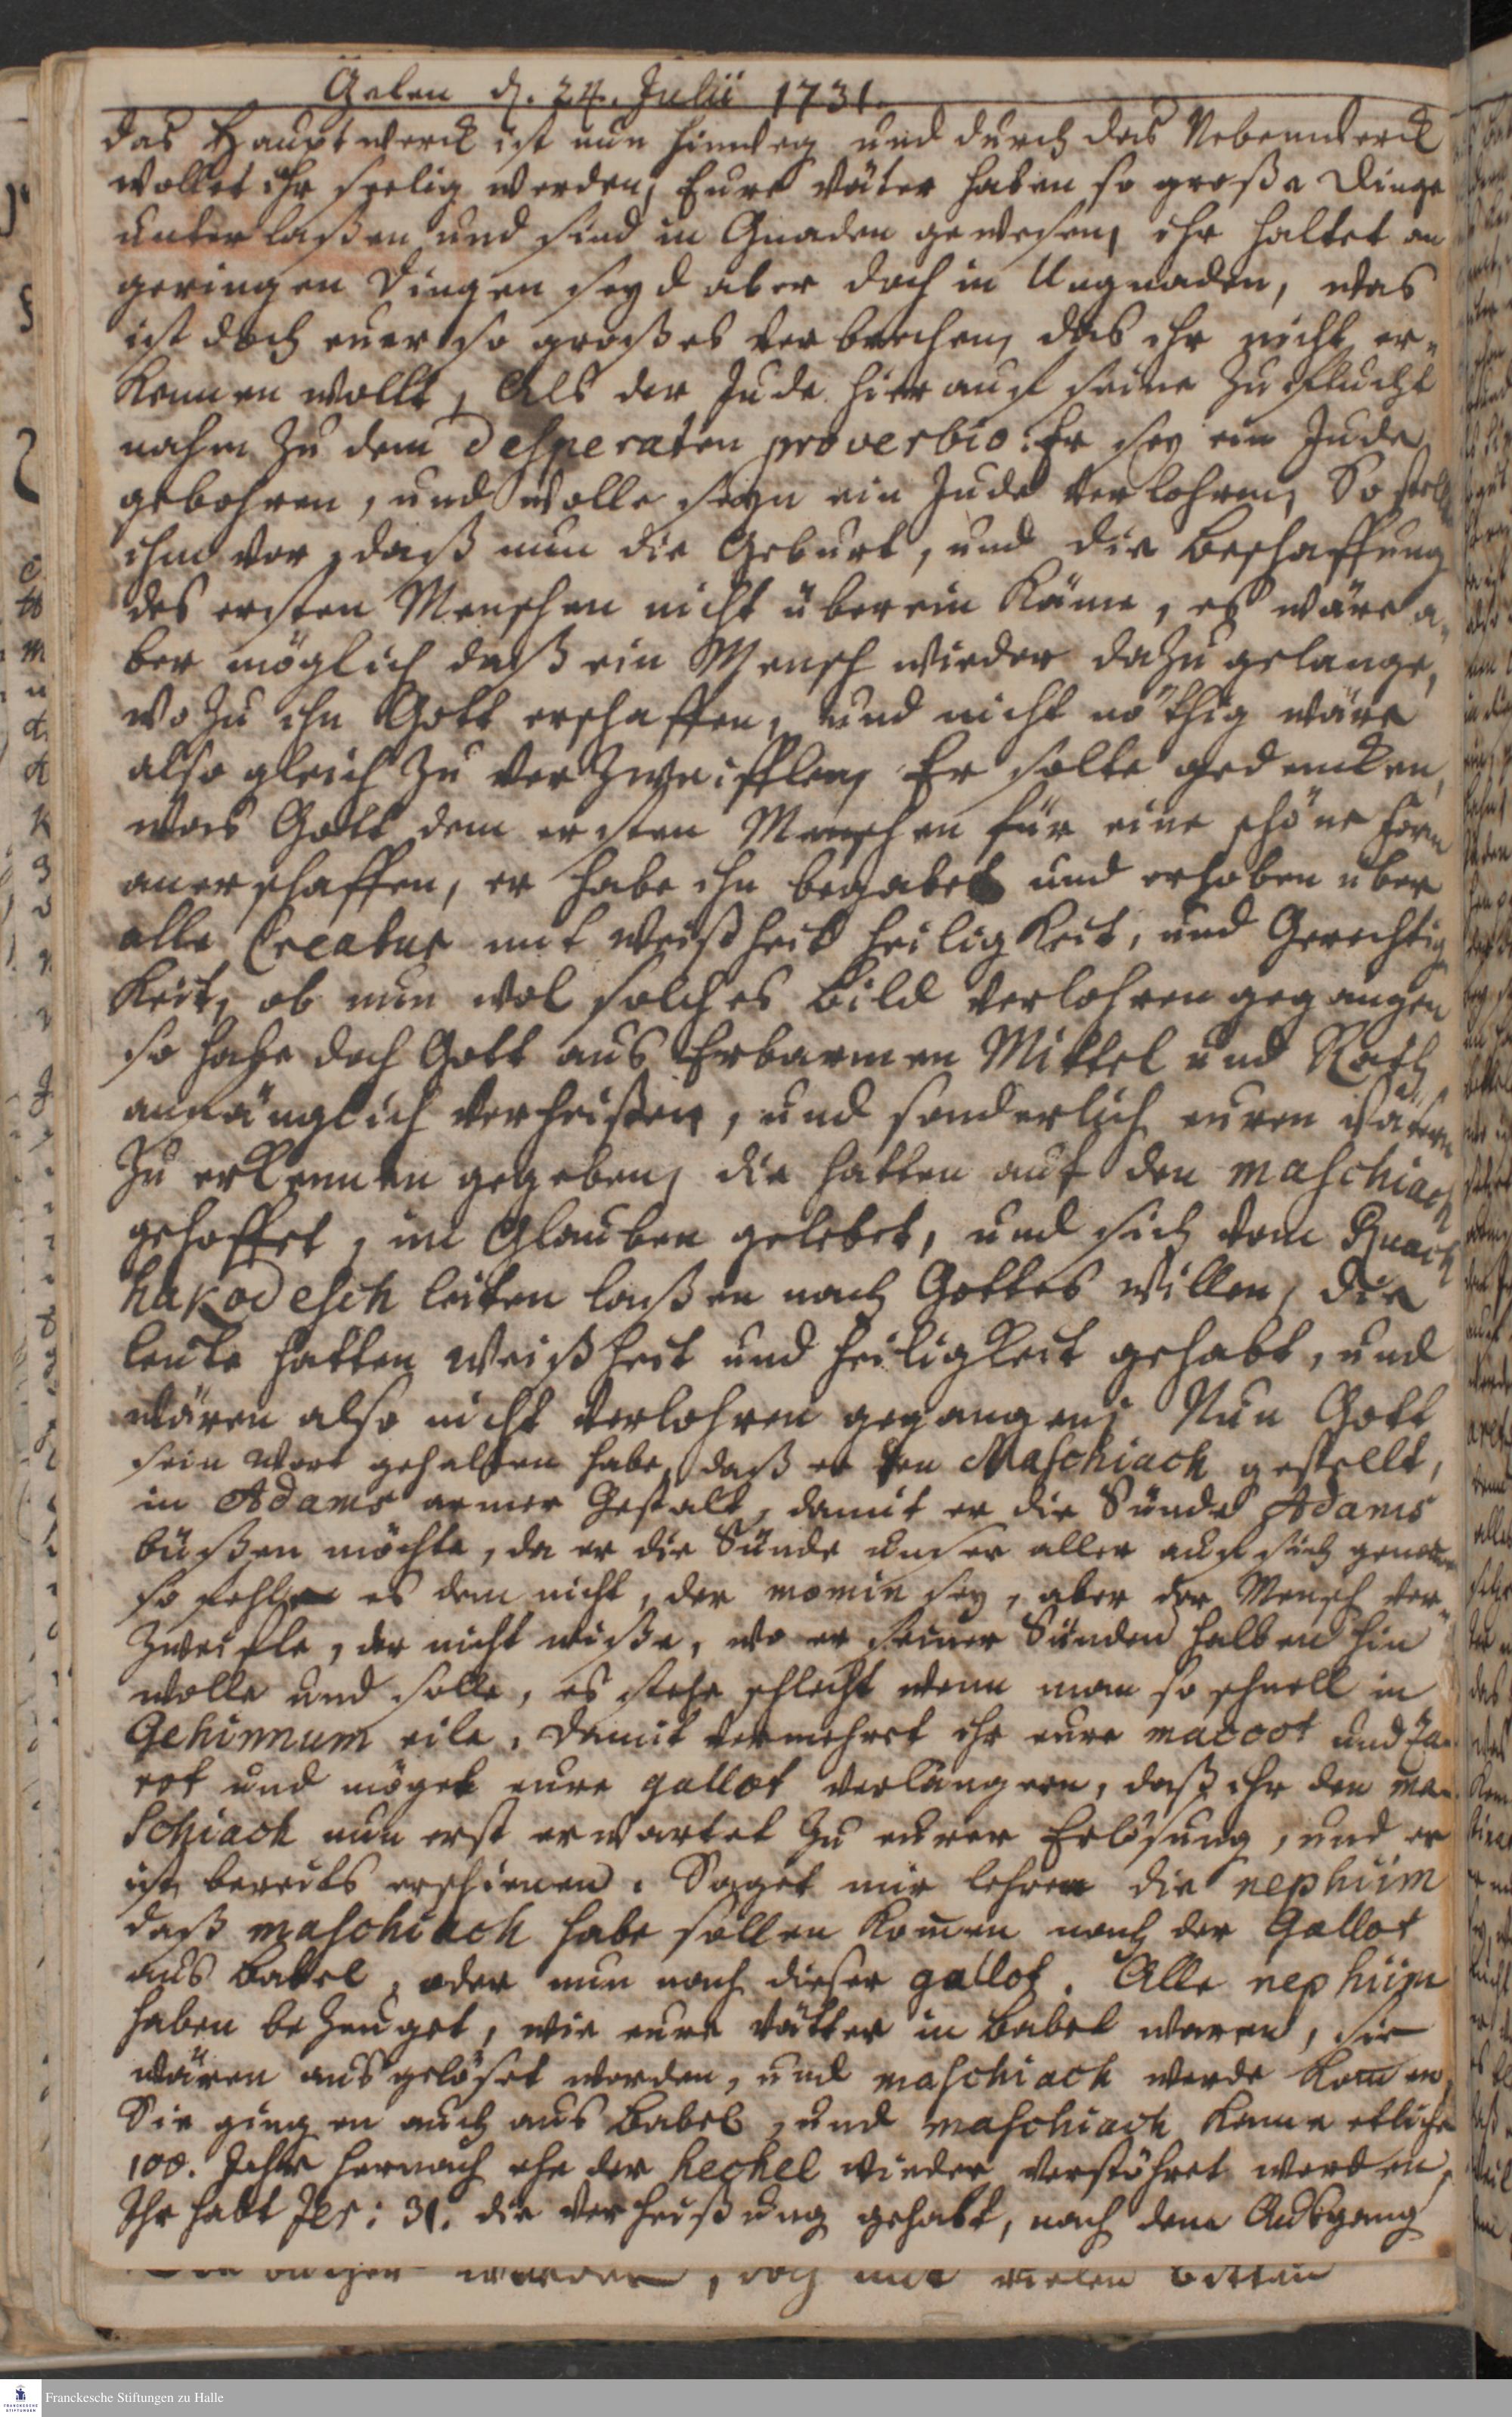 Aelen d. 24. Julii 1731.
das Hauptwerck ist nun hinweg und durch das Nebenwerck
wollet ihr seelig werden, Eure Väter haben so große Dinge
unterlaßen und sind in Gnaden gewesen, ihr haltet an
geringen Dingen seyd aber doch in Ungnaden, was
ist doch euer so großes verbrechen, das ihr nicht er-
kennen wollt, Als der Jude hierauf seine Zuflucht
nahm zu dem desperaten proverbio: Er sey ein Jude
gebohren, und wolle seyn ein Jude verlohren, So stell
ihm vor, daß nun die Geburt, und die Beschaffung
des ersten Menschen nicht überein käme, es wäre a-
ber möglich daß ein Mensch wieder dazu gelange,
wozu ihn Gott erschaffen, und nicht nöthig wäre
also gleich zu verzweifflen, Er solte gedencken,
was Gott dem ersten Menschen für eine schöne Form
anerschaffen, er habe ihn begabet und erhoben über
alle Creatur mit Weißheit heiligkeit, und Gerechtig
keit, ob nun wol solches bild verlohren gegangen
so habe doch Gott aus Erbarmen Mittel und Rath
anfänglich verheißen, und sonderlich euren Vätern
zu erkennen gegeben, die hatten auf den maschiach
gehoffet, im Glauben gelebet, und sich vom Ruach
hakodesch leiten laßen nach Gottes willen, die
leute hatten Weißheit und heiligkeit gehabt, und
wären also nicht verlohren gegangen; Nun Gott
sein Wort gehalten habe, daß er den Maschiach gestellt,
in Adams armer Gestalt, damit er die Sünde Adams
büßen möchte, da er die Sünde unser aller auf sich genomen
so fehle es dem nicht, der momin sey, aber der Mensch ver-
zweifle, der nicht wiße, wo er seiner Sünden halben hin
wolle und solle, es stehe schlecht wenn man so schnell in
Gehinnum eile, damit vermehret ihr eure maccot und Za-
rot und möget eure gallot verlängern, daß ihr den ma-
schiach nun erst erwartet zu eurer Erlösung, und er
ist bereits erschienen. Saget mir lehren die nephiim
daß maschiach habe sollen komen nach der Gallot
aus Babel, oder nun nach dieser gallot. Alle nephiim
haben bezeuget, wie eure Vätter in Babel waren, sie
wären ausgelöset worden, und maschiach werde komen,
Sie gingen auch aus Babel, und maschiach kame etliche
100. Jahr hernach ehe der hechel wieder verstöhret worden,
Ihr habt Jer: 31. die Verheißung gehabt, nach dem Außgang
werden, doch mit vielen bitten
Franckesche Stiftungen zu Halle